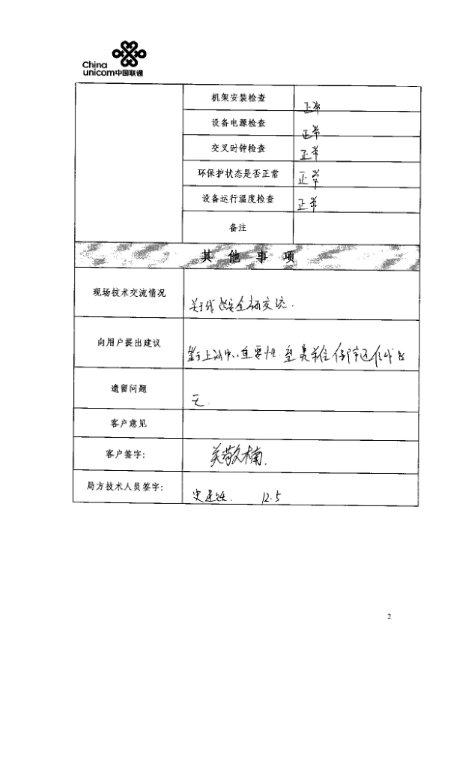 China
unicom中国联通
机架安装检查 正常
设备电源检查 正常
交叉时钟检查 正常
环保护状态是否正常 正常
设备运行温度检查 正常
备注
其他事项
现场技术交流情况
向用户提出建议
遗留问题 无
客户意见
客户签字:
局方技术人员签字: 12.5
2